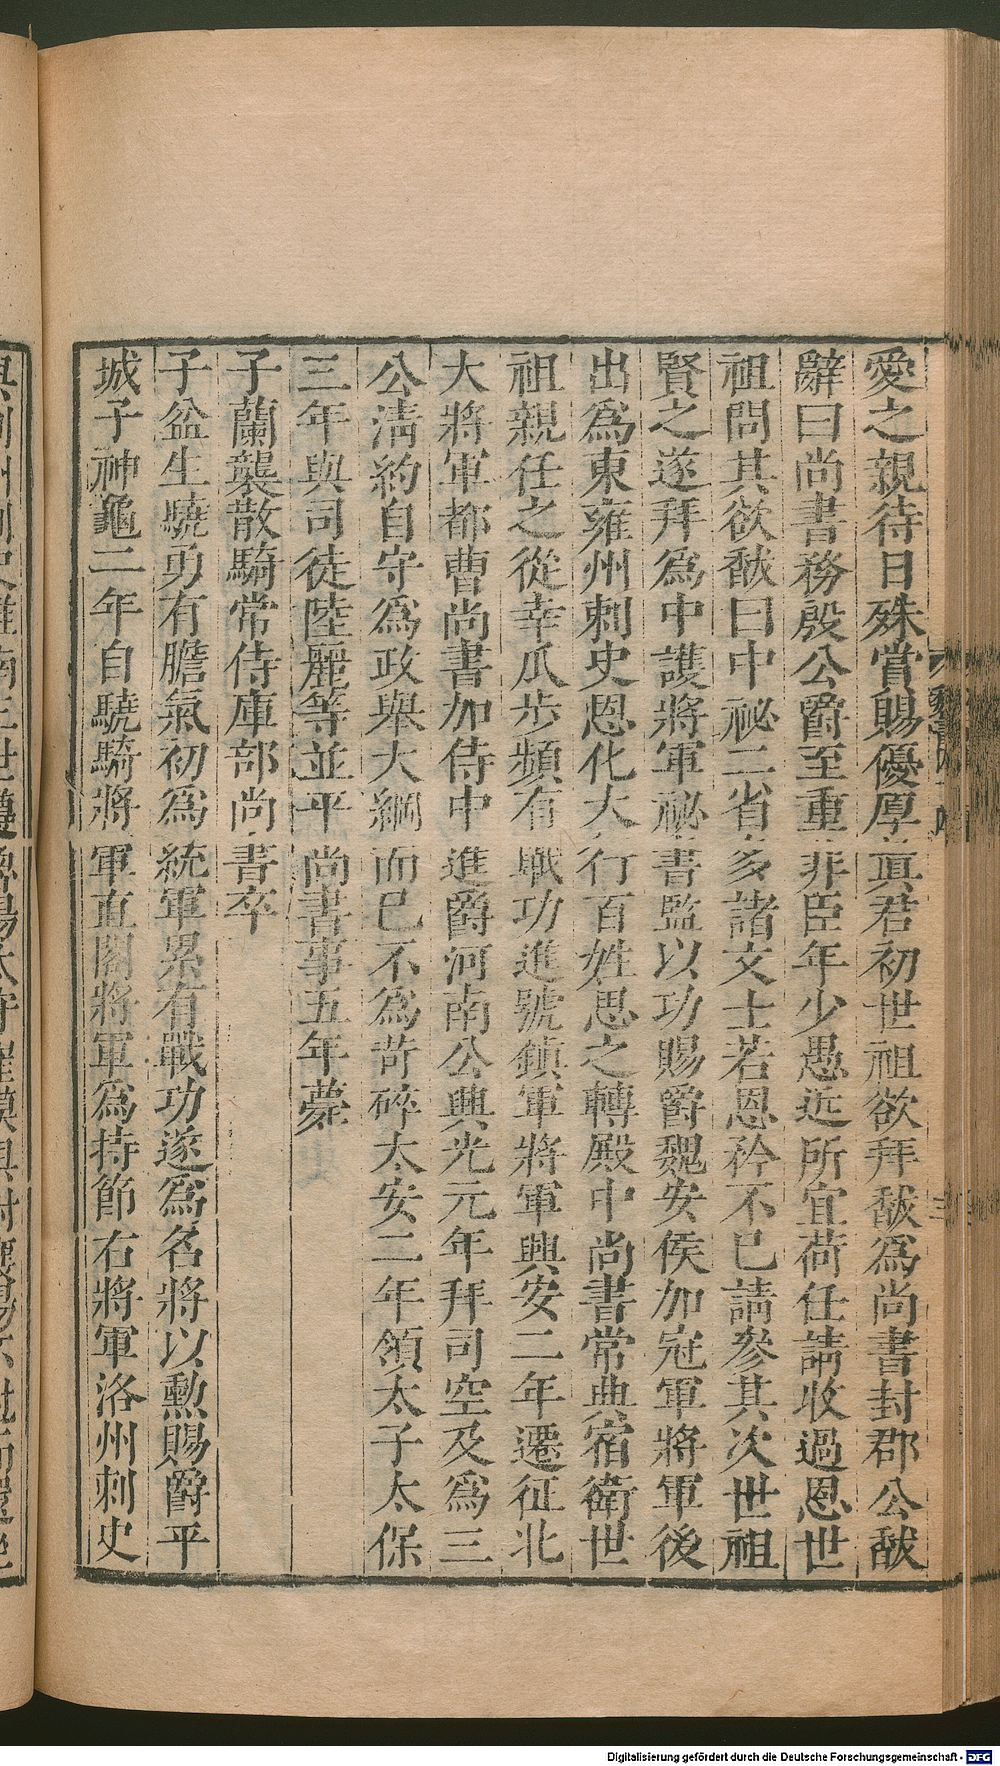 愛之親待日殊賞賜優厚眞君初世祖欲拜馛爲尚書封郡公馛
辭曰尚書務殷公爵至重非臣年少愚近所宜荷任請收過恩世
祖問其欲馛曰中祕二省多諸文士若恩矜不已請參其次世祖
賢之遂拜爲中護將軍祕書監以功賜爵魏安侯加冠軍將軍後
出爲東雍州刺史恩化大行百姓思之轉殿中尚書常典宿衛世
祖親任之從幸瓜步頻有戰功進號鎮軍將軍興安二年遷征北
大將軍都曹尚書加侍中進爵河南公興光元年拜司空及爲三
公清約自守爲政舉大綱而已不爲苛碎太安二年領太子太保
三年與司徒陸麗等並平尚書事五年薨
子蘭襲散騎常侍庫部尚書卒
子盆生驍勇有膽氣初爲統軍累有戰功遂爲名將以勲賜爵平
城子神龜二年自驍騎將軍直閣將軍爲持節右將軍洛州刺史
Digitalisierung gefördert durch die Deutsche Forschungsgemeinschaft - DFG